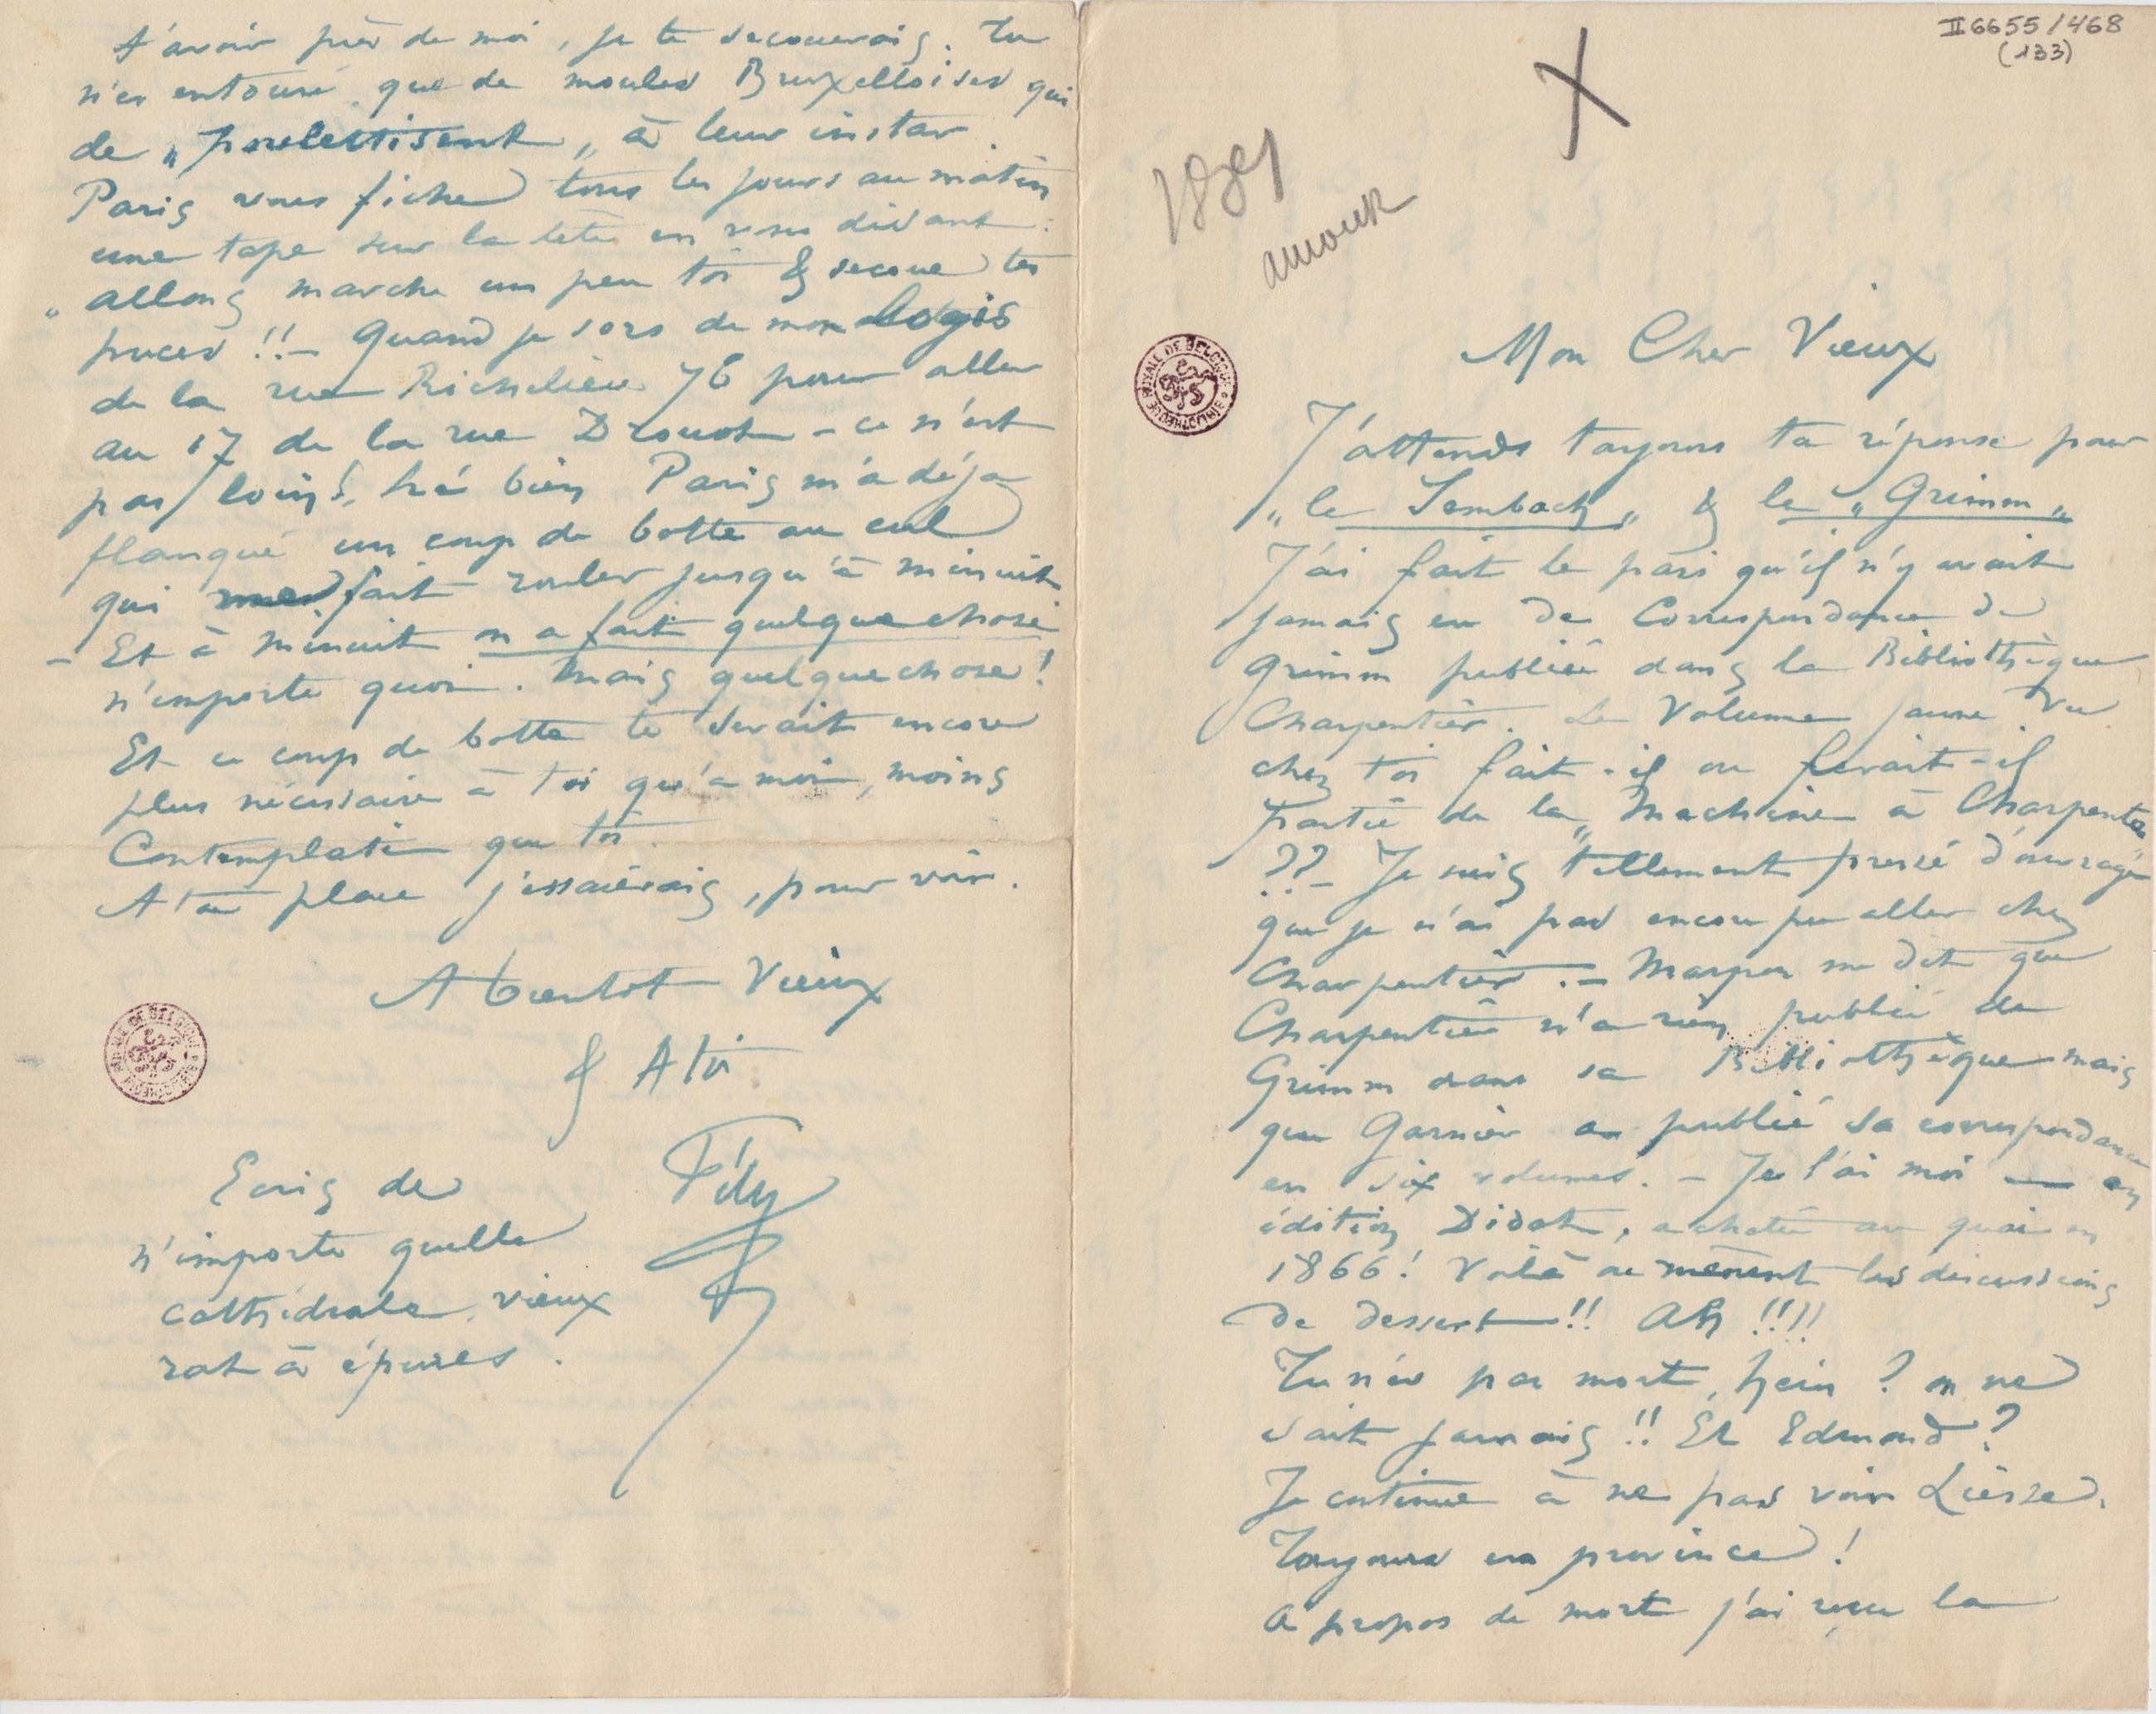 II 6655/468
(133)
1891
amour
BIBLIOTHÈQUE ROYALE DE BELGIQUE
Mon Cher Vieux
J'attends toujours ta réponse pour
„le Sembach„ & le „Grimm„
J'ai fait le pari qu'il n'y avait
jamais eu de Correspondance de
Grimm publiée dans la Bibliothèque
Charpentier. Le Volume jaune vu
chez toi fait-il ou ferait-il
partie de la „Machine à Charpentier
??_ Je suis tellement pressé d'ouvrage
que je n'ai pas encore pu aller chez
Charpentier. _ Marpon me dit que
Charpentier n'a rien publié de
Grimm dans sa Bibliothèque mais
que Garnier a publié sa correspondance
en six volumes. _ Je l'ai moi en
édition Didot, acheté au quai en
1866! Voilà ou mènent les discussions
de dessert!! Ah!!!!
Tu n'es pas mort, hein? on ne
sait jamais!! Et Edmond?
Je continue à ne pas voir Liesse.
Toujours en province!
A propos de mort j'ai reçu la
t'avoir près de moi, je te secouerais. Tu
n'es entouré que de moules Bruxelloises qui
de „ „ à leur instar
Paris vous fiche tous les jours au matin
une tape sur la tête en vous disant:
„allons marche un peu toi & secoue tes
puces!!_ Quand je sors de mon logis
de la rue Richelieu 76 pour aller
au 17 de la rue Drouot _ ce n'est
pas loin!, hé bien Paris m'a déja
flanqué un coup de botte au cul
qui fait rouler jusqu'à minuit
_ Et à minuit on a fait quelque chose
n'importe quoi. Mais quelque chose!
Et ce coup de botte te serait encore
plus nécessaire à toi qu'a moi, moins
Contemplatif que toi.
A ta place j'essaierais, pour voir.
A bientot Vieux
& A toi
Fély
Ecris de
n'importe quelle
cathédrale, vieux
rat à épures.
BIBLIOTHÈQUE ROYALE DE BELGIQUE